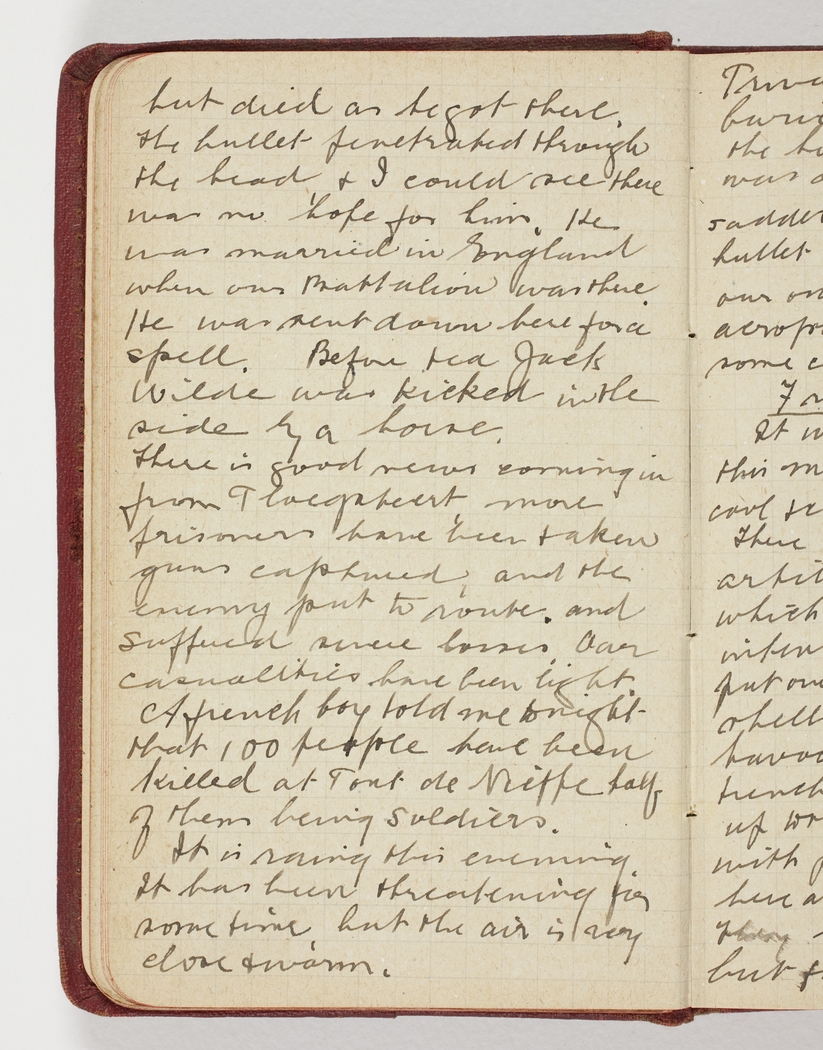 but died as he got there.
The bullet penetrated through
the head, & I could see there
was no hope for him. He
was married in England
when our Battalion was there.
He was sent down here for a
spell. Before tea Jack
Wilde was kicked in the
side by a horse.
There is good news coming in
from Ploegsteert, more
prisoners have been taken
guns captured, and the
enemy put to route. and
suffered severe losses. Our
casualities have been light.
A french boy told me tonight
that 100 people have been
killed at Pont de Nieppe half
of them being soldiers.
It is raing this evening
It has been threatening for
some time but the air is very
close & warm.
the
was
bullet
our
some
It
this
cool
There
which
put
trench
up
with
but